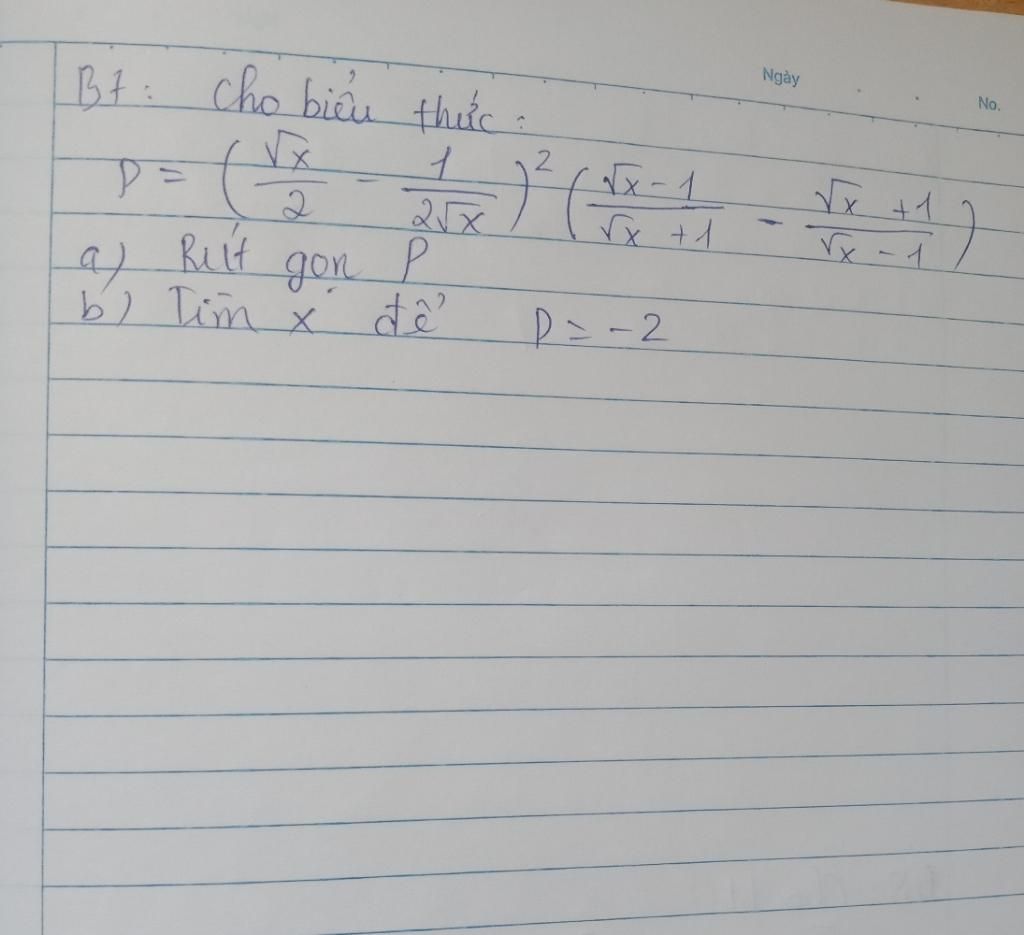 Ngày
No.
B7: Cho biểu thức:
P = (√x/2 - 1/2√x)² (√x-1/√x+1 - √x+1/√x-1)
a) Rút gọn P
b) Tìm x để P = -2